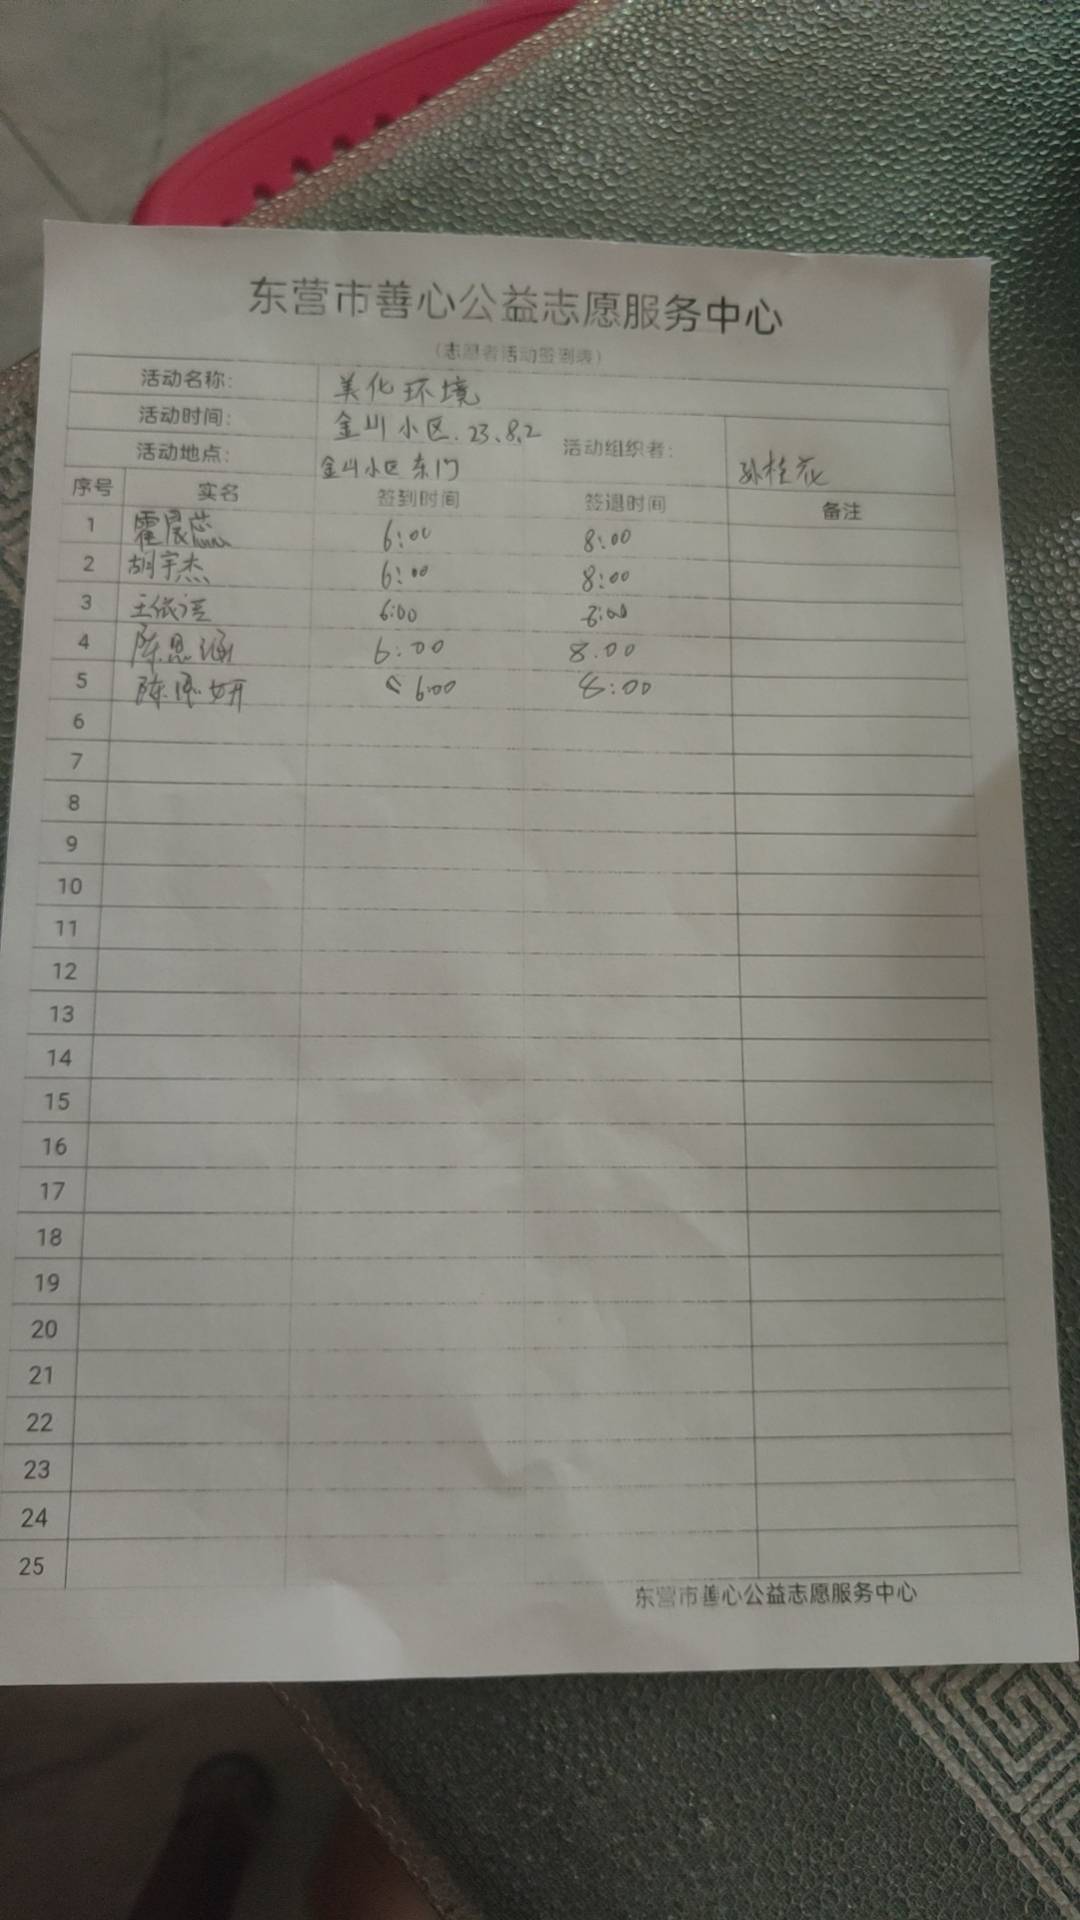 东营市善心公益志愿服务中心
（志愿者活动签到表）
活动名称： 美化环境
活动时间： 金山小区.23.8.2 活动组织者： 孙桂花
活动地点： 金山小区东门
序号 实名 签到时间 签退时间 备注
1 霍晨蕊 6:00 8:00
2 胡宇杰 6:00 8:00
3 王依 6:00 8:00
4 陈思涵 6:00 8.00
5 陈 妍 6:00 8:00
6
7
8
9
10
11
12
13
14
15
16
17
18
19
20
21
22
23
24
25
东营市善心公益志愿服务中心